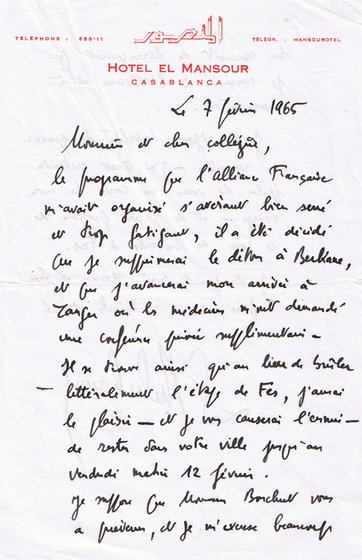 المنصور
TÉLÉPHONE : 680-11
TÉLÉGR. : MANSOUROTEL
HOTEL EL MANSOUR
CASABLANCA
Le 7 février 1965
Monsieur et cher collègue,
le programme que l'Alliance Française
m'avait organisé s'avérant bien serré
et trop fatigant, il a été décidé
que je supprimerai le détour à Berkane,
et que j'avancerai mon arrivée à
Tanger où les médecins m'ont demandé
une conférence privée supplémentaire –
Il se trouve ainsi qu'au lieu de brûler
– littéralement l'étape de Fès, j'aurai
le plaisir – et je vous causerai l'ennui –
de rester dans votre ville jusqu'au
vendredi matin 12 février.
Je suppose que Monsieur vous
a prévenu, et je m'excuse beaucoup